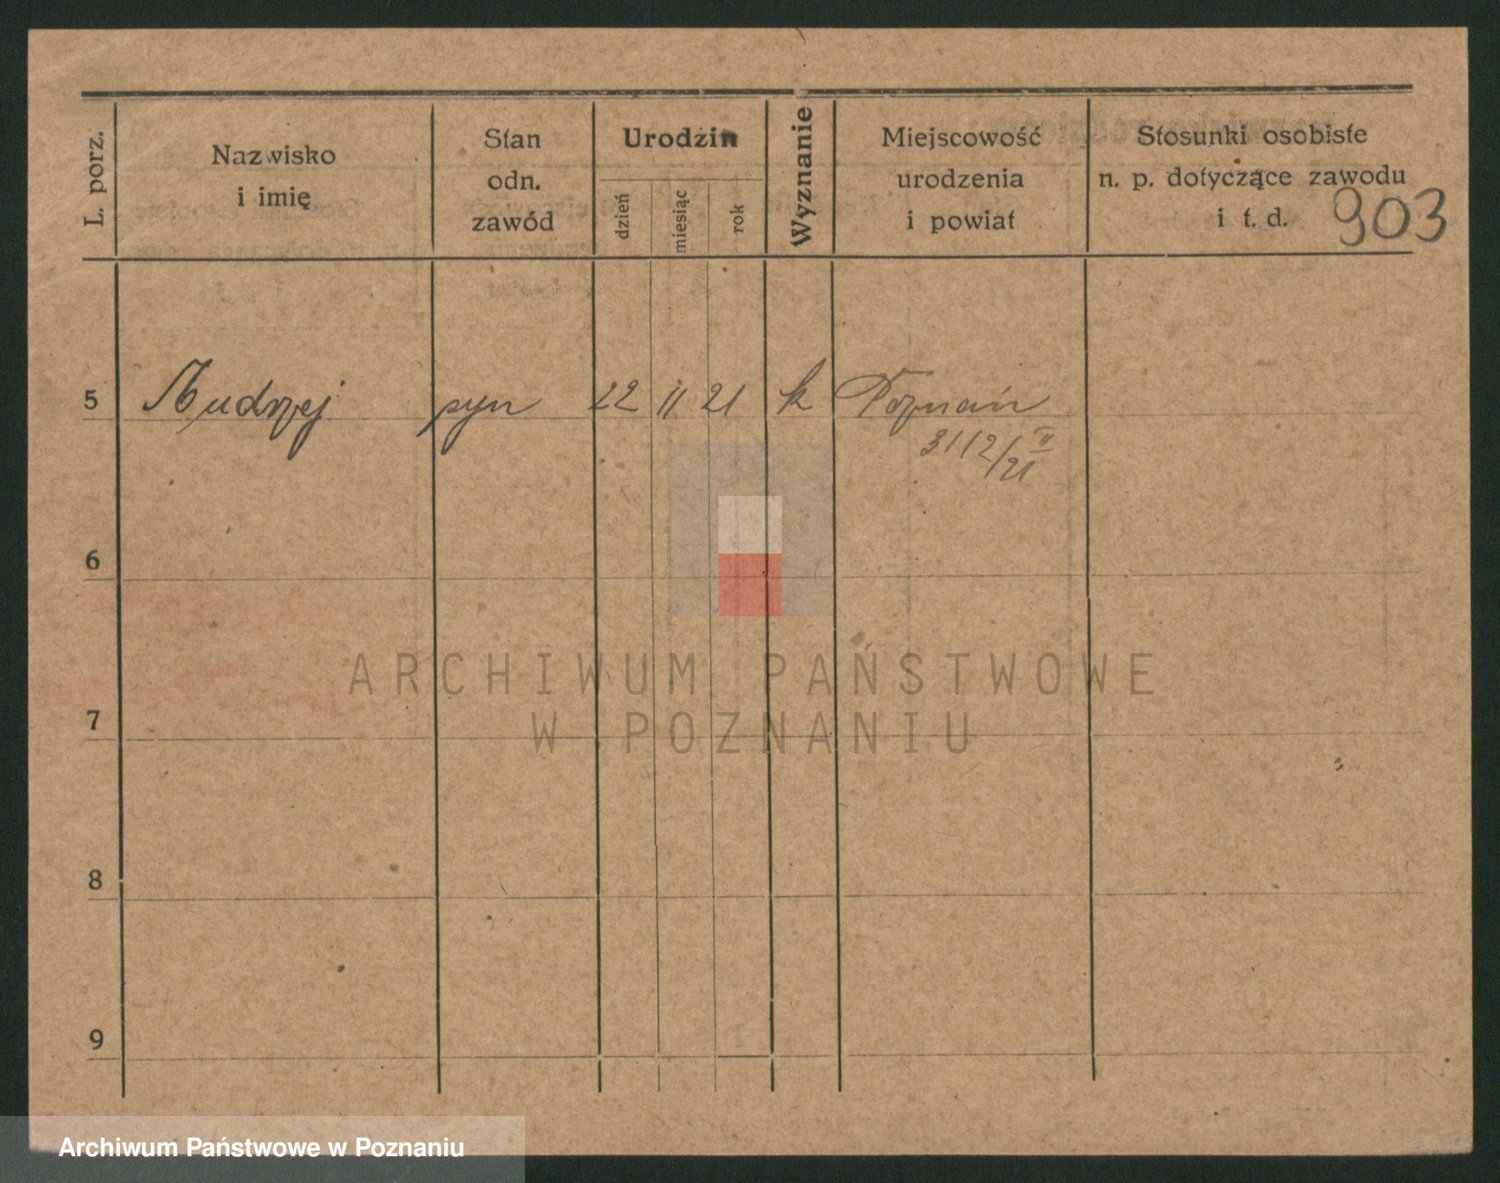 L. porz.
Nazwisko
i imię
Stan
odn.
zawód
Urodzin
dzień
miesiąc
rok
Wyznanie
Miejscowość
urodzenia
i powiat
Stosunki osobiste
n. p. dotyczące zawodu
i t. d.
903
5 Andrzej syn 22 11 21 k Poznań
3112/II 21
6
7
8
9
ARCHIWUM PAŃSTWOWE
W POZNANIU
Archiwum Państwowe w Poznaniu